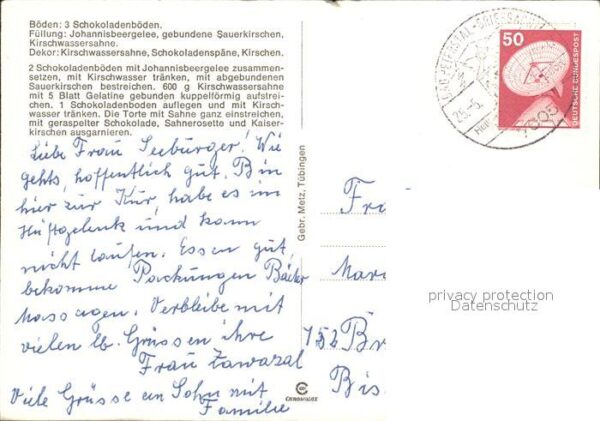 Böden: 3 Schokoladenböden.
Füllung: Johannisbeergelee, gebundene Sauerkirschen,
Kirschwassersahne.
Dekor: Kirschwassersahne, Schokoladenspäne, Kirschen.
2 Schokoladenböden mit Johannisbeergelee zusammen-
setzen, mit Kirschwasser tränken, mit abgebundenen
Sauerkirschen bestreichen. 600 g Kirschwassersahne
mit 5 Blatt Gelatine gebunden kuppelförmig aufstrei-
chen. 1 Schokoladenboden auflegen und mit Kirsch-
wasser tränken. Die Torte mit Sahne ganz einstreichen,
mit geraspelter Schokolade, Sahnerosette und Kaiser-
kirschen ausgarnieren.
Liebe Frau Seeburger! Wie
gehts, hoffentlich gut. Bin
hier zur Kur, habe es im
Hüftgelenk und kann
nicht laufen. Essen gut,
bekomme Packungen Bäder
Massagen. Verbleibe mit
vielen lb. Grüssen ihre
Frau Zawazal
Viele Grüsse an Sohn mit
Familie
Gebr. Metz, Tübingen
CHROMOLUX
50
DEUTSCHE BUNDESPOST
25.-5.
7605
Fra
Mar
752 Br
Bis
privacy protection
Datenschutz